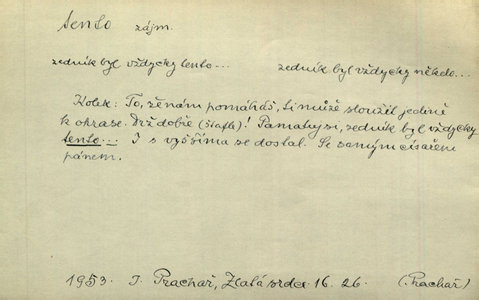 tento zájm.
zedník byl vždycky tento... zedník byl vždycky někdo...
Kolek: To, že nám pomáháš, ti může sloužit jedině
k okrase. Drž dobře (štafle)! Pamatuj si, zedník byl vždycky
tento... I s vyššíma se dostal. Se samým císařem
pánem.
1953 I. Prachař, Zlatá srdce 16. 26. (Prachař)